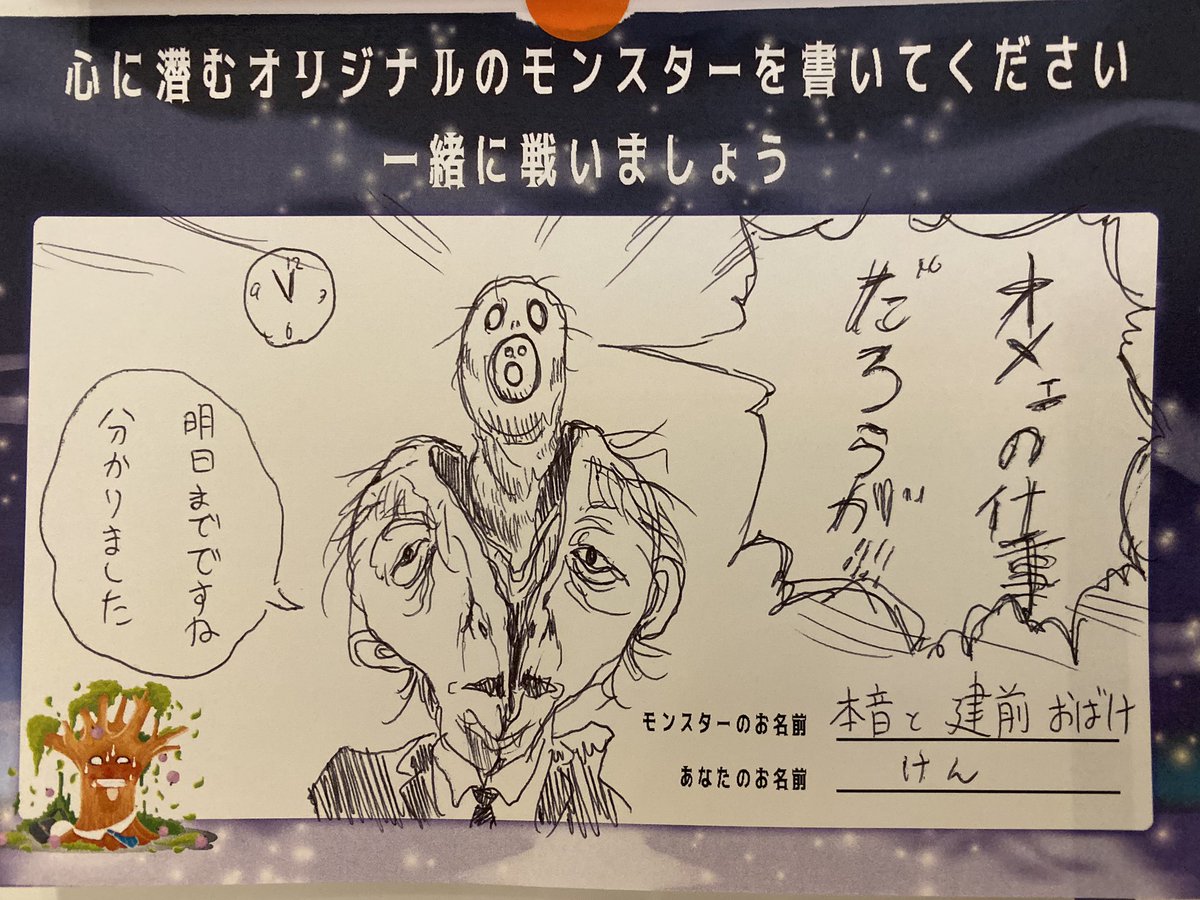 心に潜むオリジナルのモンスターを書いてください
一緒に戦いましょう
12
9
3
6
オメェの仕事
だろうが!!!
明日までですね
分かりました
モンスターのお名前 本音と建前おばけ
あなたのお名前 けん